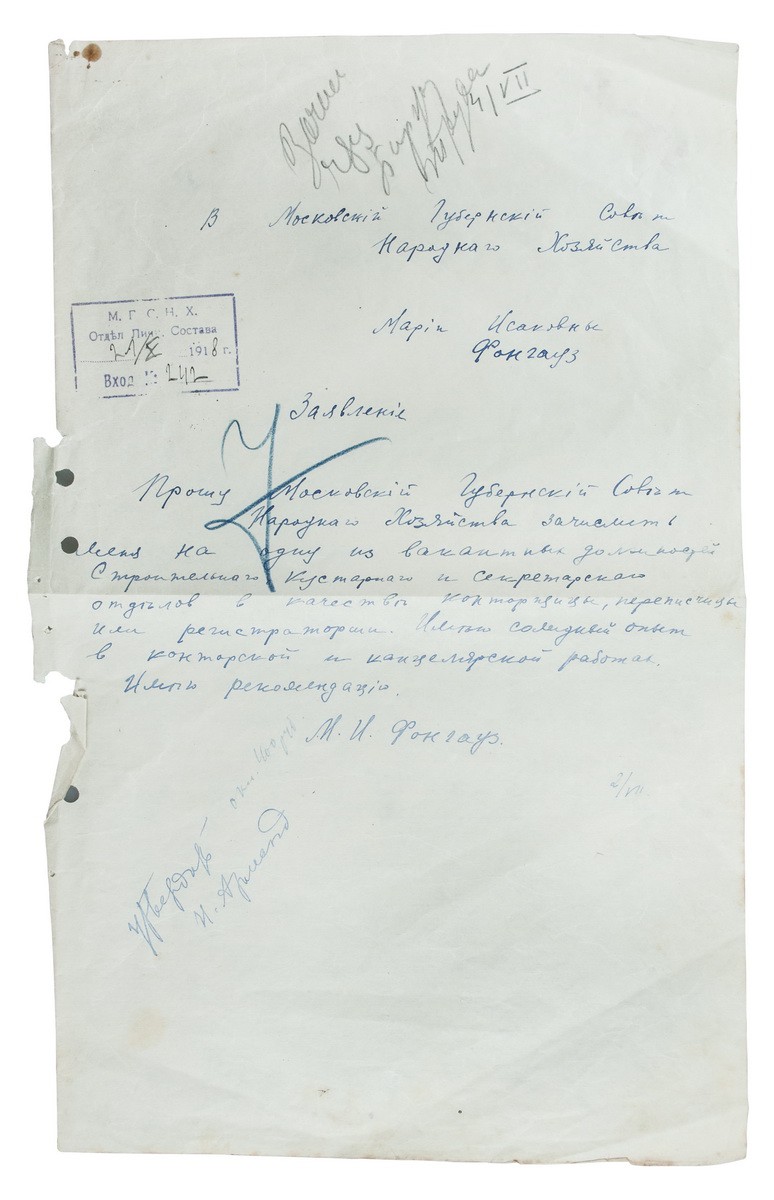 4/VII
В Московскій Губернскій Совѣт
Народнаго Хозяйства
М. Г. С. Н. Х.
Отдѣл Личн. Состава
1918 г.
Вход № 242
Маріи Исаковны
Фонгауз
Заявленіе
Прошу Московскій Губернскій Совѣт
Народнаго Хозяйства зачислить
меня на одну из вакантных должностей
Строительнаго Кустарнаго и секретарскаго
отдѣлов в качествѣ конторщицы, переписчицы
или регистраторши. Имѣю солидный опыт
в конторской и канцелярской работах.
Имѣю рекомендацію.
М. И. Фонгауз.
2/VII
И. Арманд